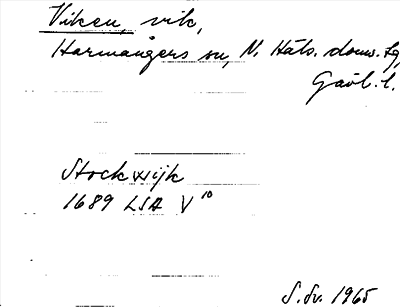 Viken, vik,
Harmångers sn, N. Häls. doms. tg,
Gävl. l.
Stockwijk
1689 LSA V¹⁰
S. Sv. 1965